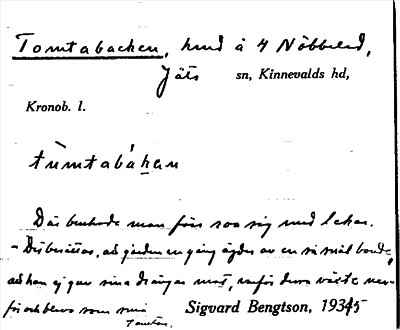 Tomtabacken, hmd å 4 Nöbbeled,
Jäts sn, Kinnevalds hd,
Kronob. l.
tùmtabákan
Där brukade man förr roa sig med lekar.
– Det berättas, att gården en gång ägdes av en så snål bonde,
att han ej gav sina drängar mat, varför dessa
för och blevo som små
tomtar.
Sigvard Bengtson, 1935